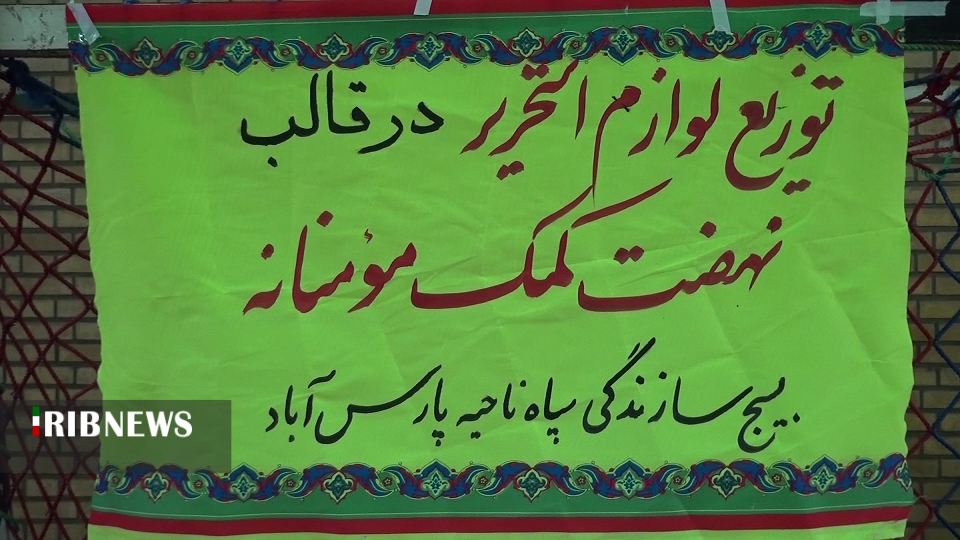 توزیع لوازم التحریر در قالب
نهضت کمک مؤمنانه
بسیج سازندگی سپاه ناحیه پارس آباد
IRIBNEWS